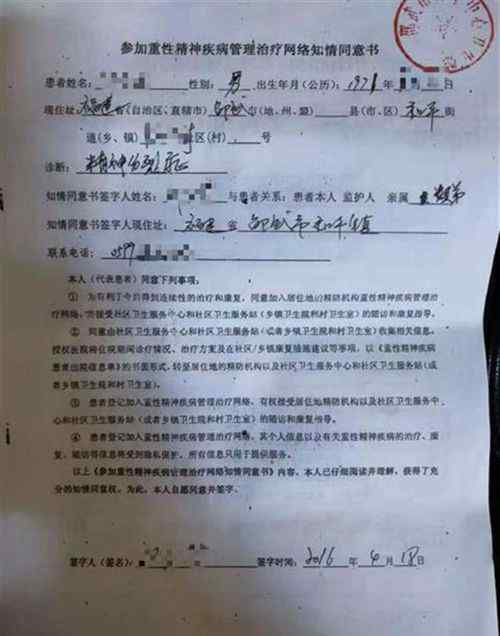 参加重性精神疾病管理治疗网络知情同意书
患者姓名: 性别: 男 出生年月(公历): 1971 年
现住址 福建 省(自治区、直辖市) 邵武 市(地、州、盟) 县(市、区) 和平 街
道(乡、镇) 社区(村) 号
诊断: 精神分裂症
知情同意书签字人姓名: 与患者关系: 患者本人 监护人 亲属
知情同意书签字人现住址: 福建 省 邵武市和平镇
联系电话: 0599
本人(代表患者)同意下列事项:
① 为有利于今后得到连续性的治疗和康复,同意加入居住地的精防机构重性精神疾病管理治
疗网络,并接受社区卫生服务中心和社区卫生服务站(乡镇卫生院和村卫生室)的随访和康复指导。
② 同意由社区卫生服务中心和社区卫生服务站(或者乡镇卫生院和村卫生室)收集相关信息,
授权医院将住院期间诊疗情况、治疗方案及在社区/乡镇康复措施建议等事项,以《重性精神疾病
患者出院信息单》的书面形式,转至居住地的精防机构以及社区卫生服务中心和社区卫生服务站(或
者乡镇卫生院和村卫生室)。
③ 患者登记加入重性精神疾病管理治疗网络,有权接受居住地精防机构以及社区卫生服务中
心和社区卫生服务站(或者乡镇卫生院和村卫生室)的随访和康复指导。
④ 患者登记加入重性精神疾病管理治疗网络,其个人信息以及有关重性精神疾病的治疗、康
复、随访等信息将受到隐私保护,所有信息只用于提供服务。
以上《参加重性精神疾病管理治疗网络知情同意书》内容,本人已仔细阅读并理解,获得了充
分的知情同意权,为此,本人自愿同意并签字。
签字人(签名): 签字时间: 2016 年 4 月 18 日